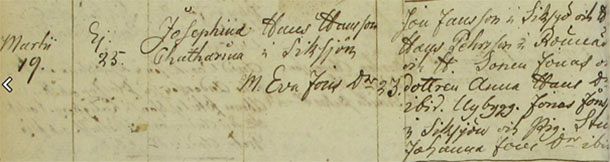 Martii 19. Ej. 25. Josephina Chatharina
Hans Hansson i Siksjön
M. Eva Jons Dr 23.
Jon Jansson i Siksjö och
Hans Pehrsson i
och H. Sonen Jonas
dottren Anna Hans D
ibid. Nybygg. Jonas Jons
i Siksjön och Pig.
Johanna Jons Dr ibid